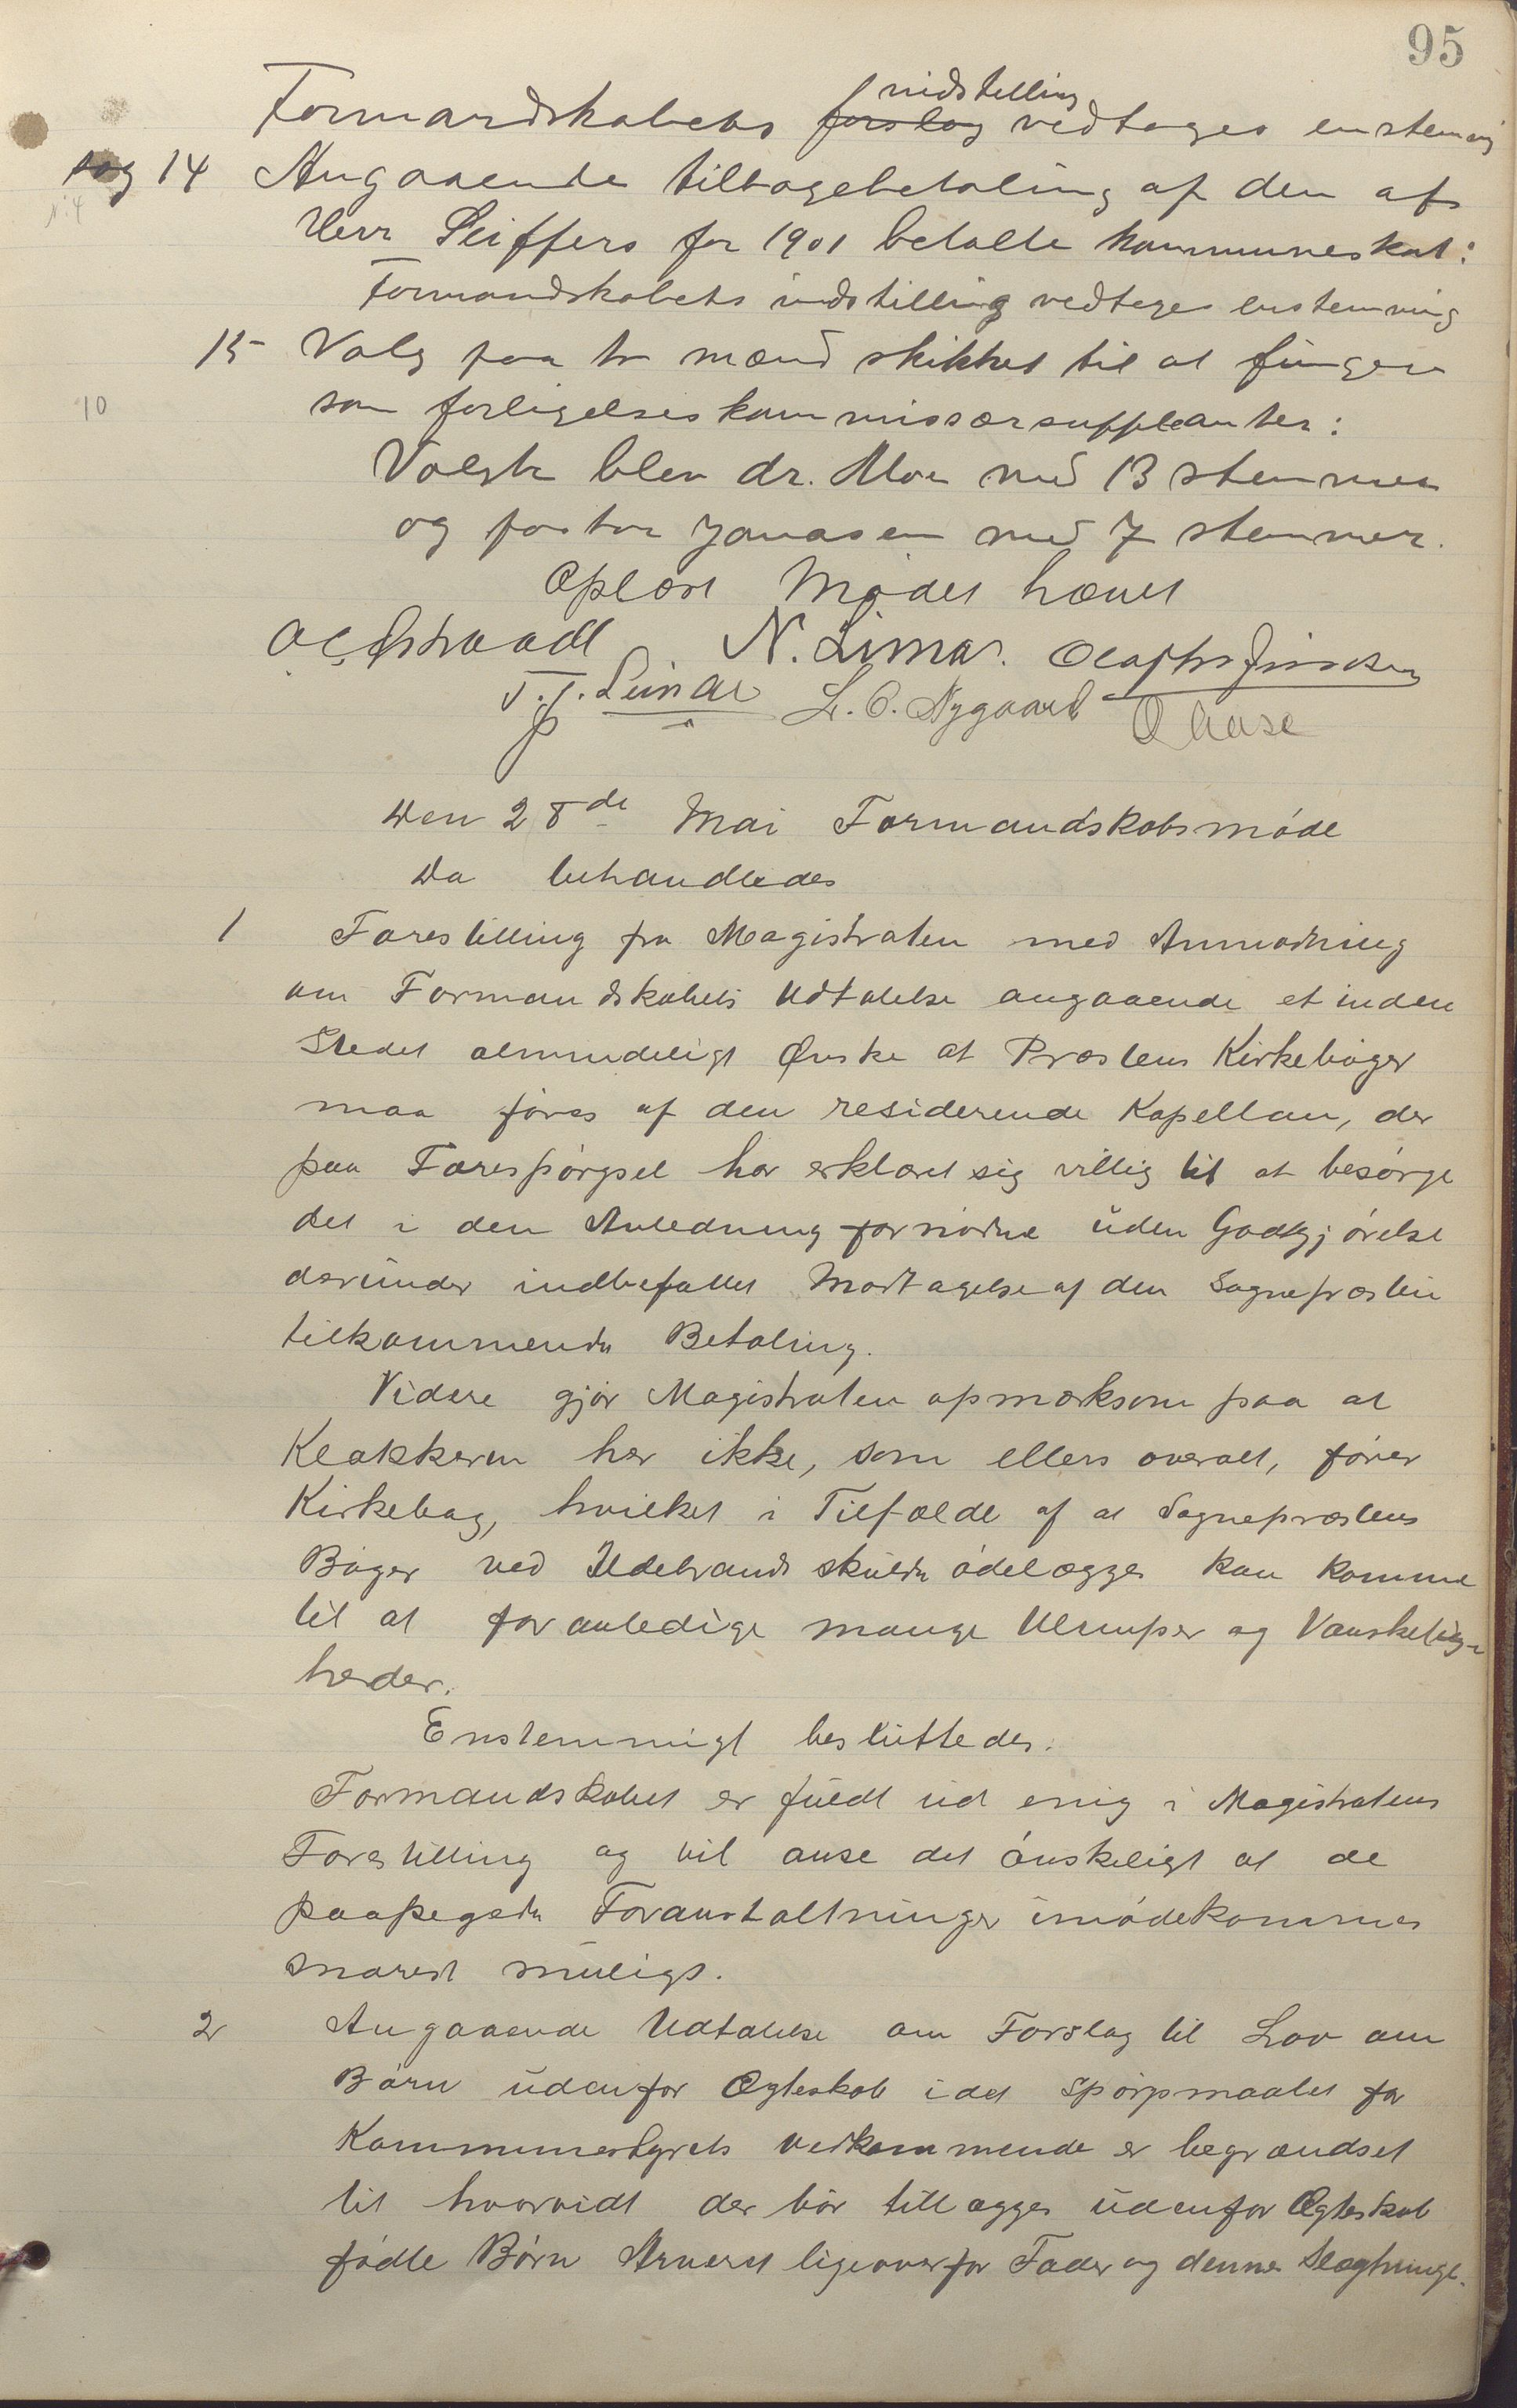 95
indstilling
Formandskabets forslag vedtoges enstemig
sag 14 Angaaende tilbagebetaling af den af
N: 4
Herr Peiffers for 1901 betalte kommuneskat:
Formandskabets indstilling vedtoges enstemmig
15 Valg paa to mænd skikket til at fungere
10
som forligelseskommissærsuppleanter:
Valgte blev dr. Moe med 13 stemmer
og pastor Jonassen med 7 stemmer.
Oplæst Mødet hævet
N. Lima.
T. T. Leinæ L. O. Nygaard O Aase
Den 28de Mai Formandskabsmøde
Da behandledes
1 Forestilling fra Magistraten med Anmodning
om Formandskabets Udtalelse angaaende et inden
Stedet almindeligt Ønske at Præstens Kirkebøger
maa føres af den residerende Kapellan, der
paa Forespørgsel har erklæret sig villig til at besørge
det i den Anledning fornødne uden Godtgjørelse
derunder indbefattet Modtagelse af den Sognepræsten
tilkommende Betaling.
Videre gjør Magistraten opmærksom paa at
Klokkeren her ikke, som ellers overalt, fører
Kirkebog, hvilket i Tilfælde af at Sognepræstens
Bøger ved Ildebrand skulde ødelægges kan komme
til at foranledige mange Ulemper og Vanskelig-
heder.
Enstemmigt besluttedes:
Formandskabet er fuldt ud enig i Magistratens
Forestilling og vil anse det ønskeligt at de
paapegede Foranstaltninger imødekommes
snarest muligt.
2 Angaaende Udtalelse om Forslag til Lov om
Børn udenfor Ægteskab idet Spørgsmaalet for
Kommunestyrets vedkommende er begrændset
til hvorvidt der bør tillægges udenfor Ægteskab
fødte Børn Arveret ligeoverfor Fader og dennes Slægtninge.